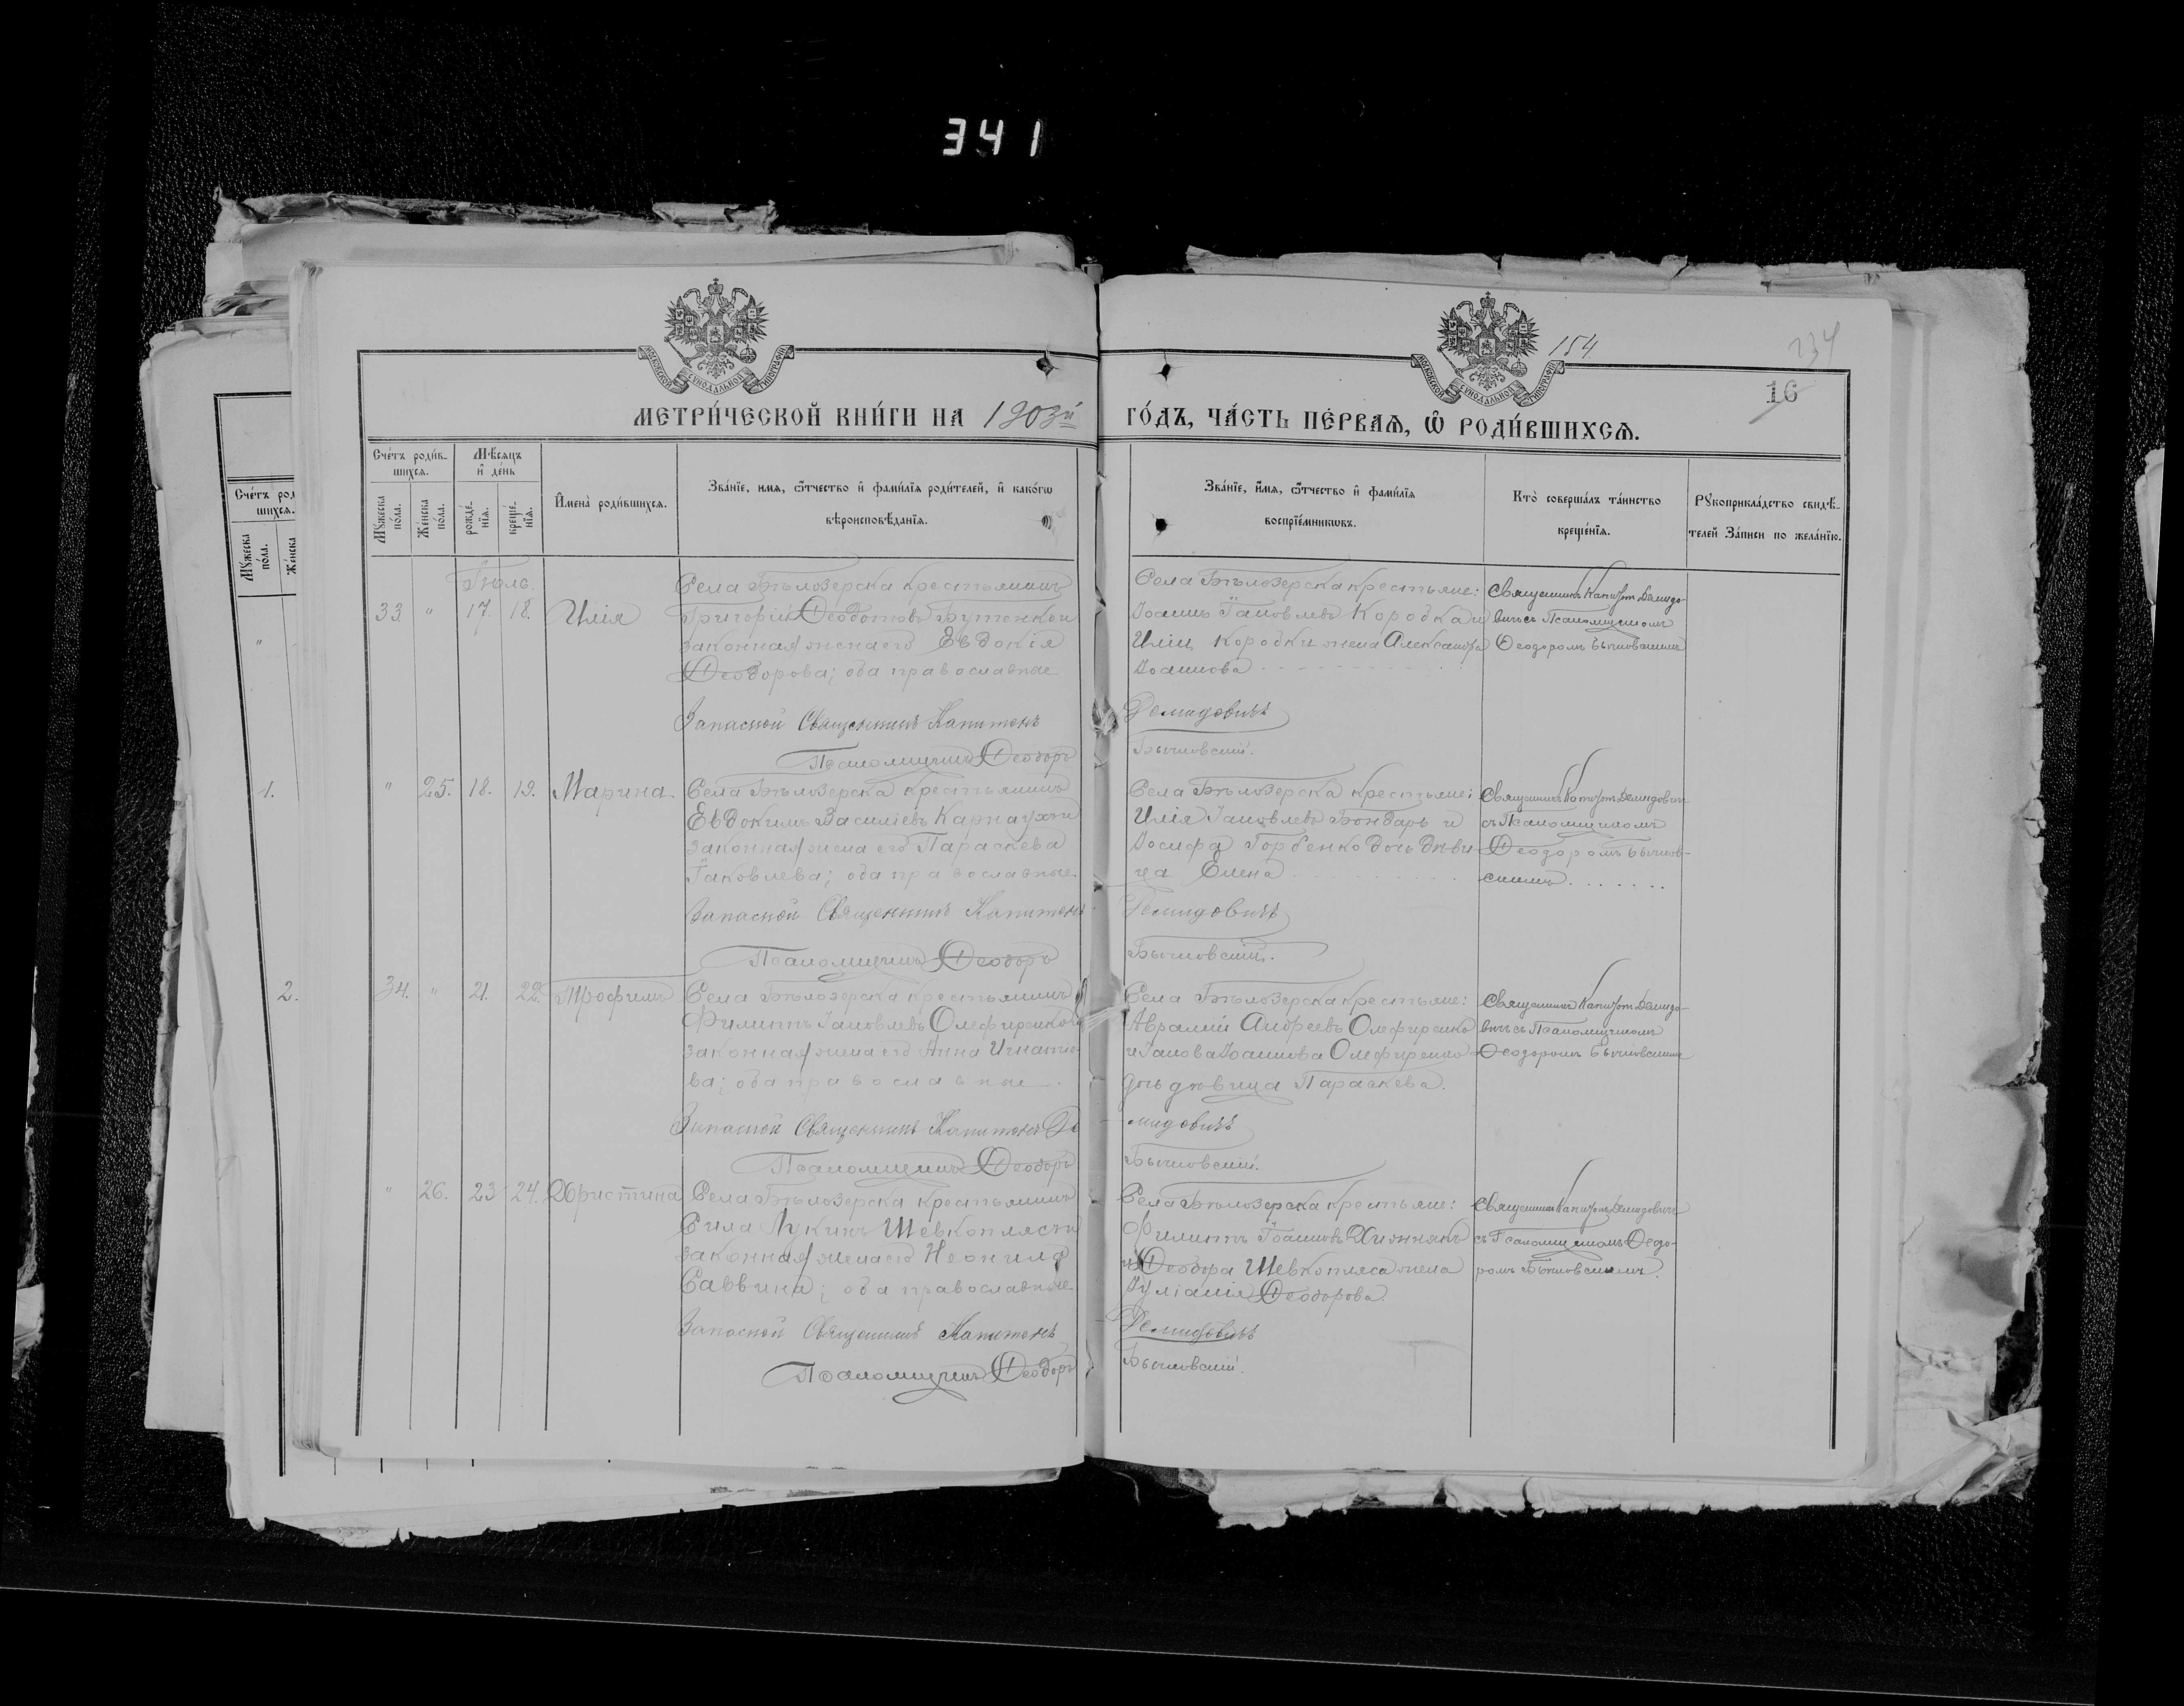 341
154
234
16
МОСКОВСКОЙ СѴНОДАЛЬНОЙ ТИПОГРАФІИ
МОСКОВСКОЙ СѴНОДАЛЬНОЙ ТИПОГРАФІИ
МЕТРИ́ЧЕСКОЙ КНИ́ГИ НА 1903й ГО́ДЪ, ЧА́СТЬ ПЕ́РВАѦ, Ѡ҆ РОДИ́ВШИХСѦ.
Сче́тъ роди́в-
шихсѧ.
Мꙋ́жеска
по́ла.
Же́нска
по́ла.
Мѣ́сѧцъ
и҆ де́нь
рожде́-
нїѧ.
креще́-
нїѧ.
И҆мена̀ роди́вшихсѧ.
Зва́нїе, имѧ, ѻ҆́тчество и҆ фами́лїѧ роди́телей, и҆ како́гѡ
вѣроисповѣ́данїѧ.
Зва́нїе, и҆́мѧ, ѻ҆́тчество и҆ фами́лїѧ
воспрїе́мникѡвъ.
Кто̀ соверша́лъ та́инство
креще́нїѧ.
Рꙋкоприкла́дство свидѣ́-
телей За́писи по жела́нїю.
Сче́тъ род
шихсѧ.
Мꙋ́жеска
по́ла.
Же́нска
"
1.
2.
Іюль.
33. " 17. 18. Илія
Села Бѣлозерска крестьянинъ
Григорій Ѳеодотовъ Бутенко и
законная жена его Евдокія
Ѳеодорова; оба православные
Запасной Священникъ Капитонъ
Псаломщикъ Ѳеодоръ
Села Бѣлозерска крестьяне:
Іоаннъ Іаковлевъ Коробка и
Иліи Коробки жена Александра
Іоаннова
Демидовичъ
Бычковскій.
Священникъ Капитонъ Демидо-
вичъ съ Псаломщикомъ
Ѳеодоромъ Бычковскимъ
" 25. 18. 19. Марина.
Села Бѣлозерска крестьянинъ
Евдокимъ Василіевъ Карнаухъ и
законная жена его Параскева
Іаковлева; оба православные.
Запасной Священникъ Капитонъ
Псаломщикъ Ѳеодоръ
Села Бѣлозерска крестьяне:
Илія Іаковлевъ Бондарь и
Іосифа Горбенко дочь дѣви-
ца Елена
Демидовичъ
Бычковскій.
Священникъ Капитонъ Демидовичъ
съ Псаломщикомъ
Ѳеодоромъ Бычков-
скимъ
34. " 21. 22. Трофимъ
Села Бѣлозерска крестьянинъ
Филиппъ Іаковлевъ Олефиренко и
законная жена его Анна Игнатіе-
ва; оба православные.
Запасной Священникъ Капитонъ Де
Псаломщикъ Ѳеодоръ
Села Бѣлозерска крестьяне:
Аврамій Андреевъ Олефиренко
и Іакова Іоаннова Олефиренко
дочь дѣвица Параскева.
мидовичъ
Бычковскій.
Священникъ Капитонъ Демидо-
вичъ съ Псаломщикомъ
Ѳеодоромъ Бычковскимъ
" 26. 23 24. Христина
Села Бѣлозерска крестьянинъ
Сила Лукинъ Шевкоплясъ и
законная жена его Неонила
Саввина; оба православные
Запасной Священникъ Капитонъ
Псаломщикъ Ѳеодоръ
Села Бѣлозерска крестьяне:
Филиппъ Іоанновъ Хижнякъ
и Ѳеодора Шевкопляса жена
Іуліанія Ѳеодорова.
Демидовичъ
Бычковскій.
Священникъ Капитонъ Демидовичъ
съ Псаломщикомъ Ѳеодо-
ромъ Бычковскимъ.